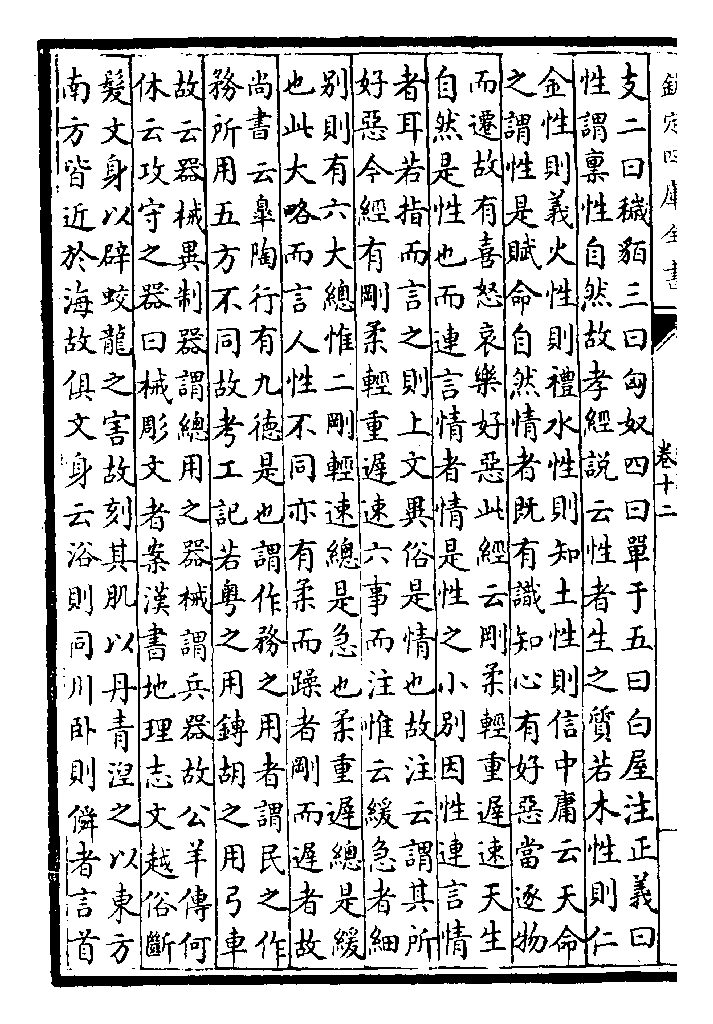 欽定四庫全書
卷十二
支二曰穢貊三曰匈奴四曰單于五曰白屋注正義曰
性謂稟性自然故孝經説云性者生之質若木性則仁
金性則義火性則禮水性則知土性則信中庸云天命
之謂性是賦命自然情者既有識知心有好惡當逐物
而遷故有喜怒哀樂好惡此經云剛柔輕重遲速天生
自然是性也而連言情者情是性之小別因性連言情
者耳若指而言之則上文異俗是情也故注云謂其所
好惡今經有剛柔輕重遲速六事而注惟云緩急者細
別則有六大總惟二剛輕速總是急也柔重遲總是緩
也此大略而言人性不同亦有柔而躁者剛而遲者故
尚書云臯陶行有九德是也謂作務之用者謂民之作
務所用五方不同故考工記若粤之用鎛胡之用弓車
故云器械異制器謂總用之器械謂兵器故公羊傳何
休云攻守之器曰械彫文者案漢書地理志文越俗斷
髮文身以辟蛟龍之害故刻其肌以丹青涅之以東方
南方皆近於海故俱文身云浴則同川卧則僢者言首